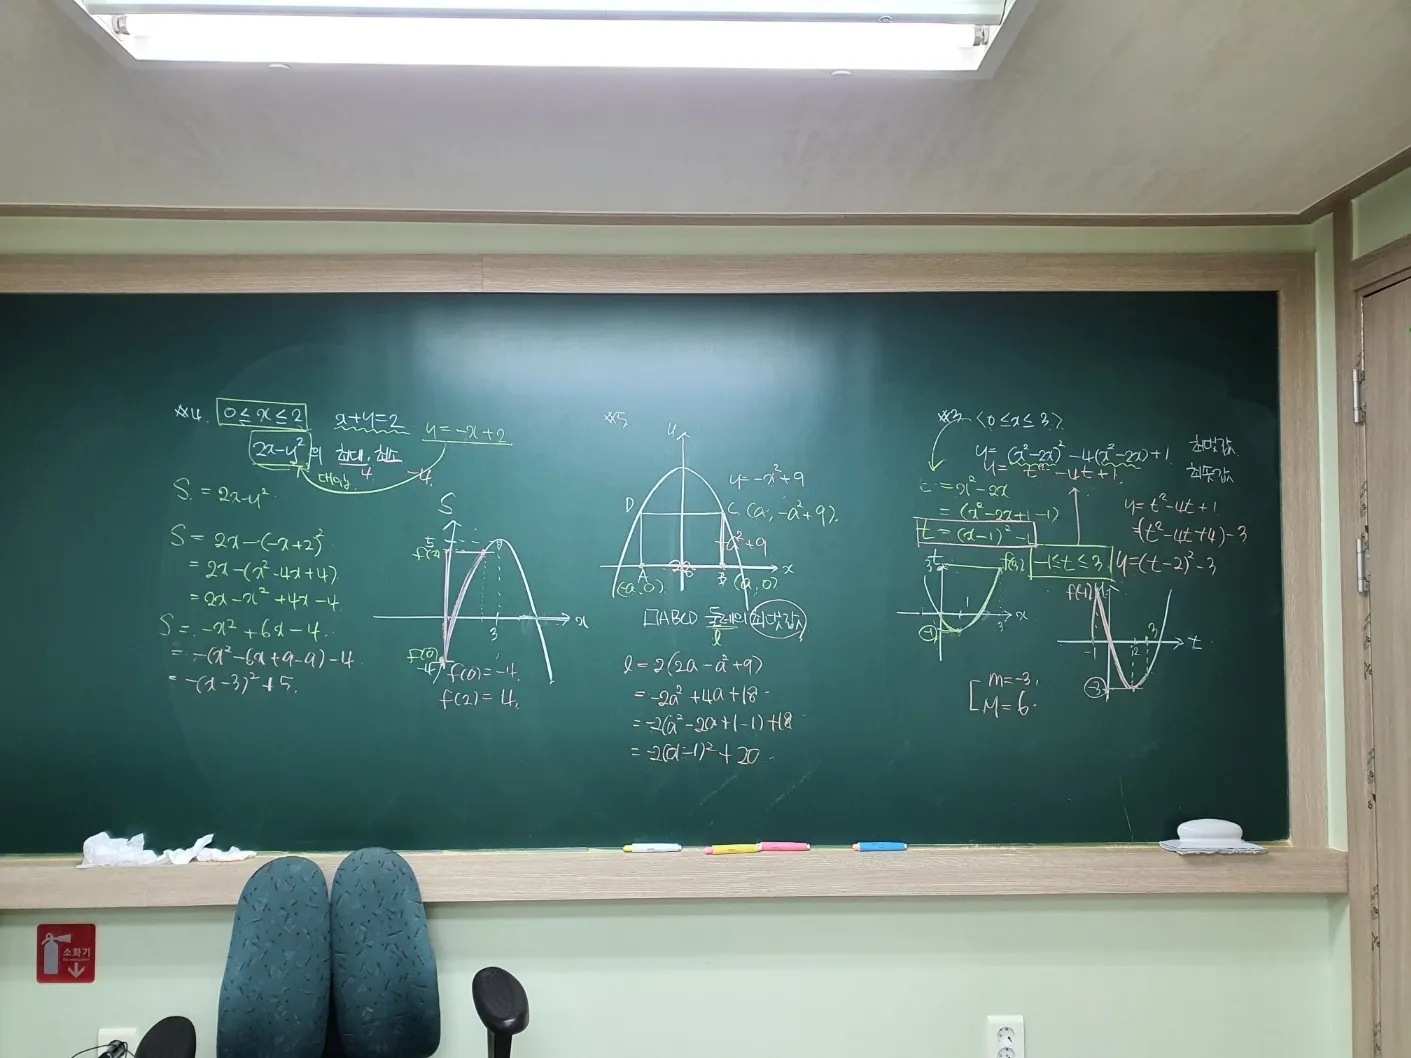 ※4. 0≤x≤2 x+y=2 y=-x+2
2x-y²의 최대, 최소
4 -4
대입
S = 2x-y²
S = 2x-(-x+2)²
= 2x-(x²-4x+4)
= 2x-x²+4x-4
S = -x²+6x-4
= -(x²-6x+9-9)-4
= -(x-3)²+5.
S
5
f(2)
x
3
f(0)
-4
f(0)=-4
f(2)=4
※5
y
y=-x²+9
D C (a, -a²+9)
-a²+9
A 2a B x
(-a,0) (a,0)
□ABCD 둘레의 최댓값
l
l=2(2a-a²+9)
= -2a²+4a+18
= -2(a²-2a+1-1)+18
= -2(a-1)²+20
※3. <0≤x≤3>
y=(x²-2x)²-4(x²-2x)+1 최댓값
y= t²-4t+1 최솟값
t = x²-2x
= (x²-2x+1-1)
t = (x-1)²-1
-1≤t≤3
y=t²-4t+1
=(t²-4t+4)-3
y=(t-2)²-3
t
3 f(3)
1 3 x
-1
f(-1)
y
-1 2 3 t
-3
m=-3,
M=6.
소화기